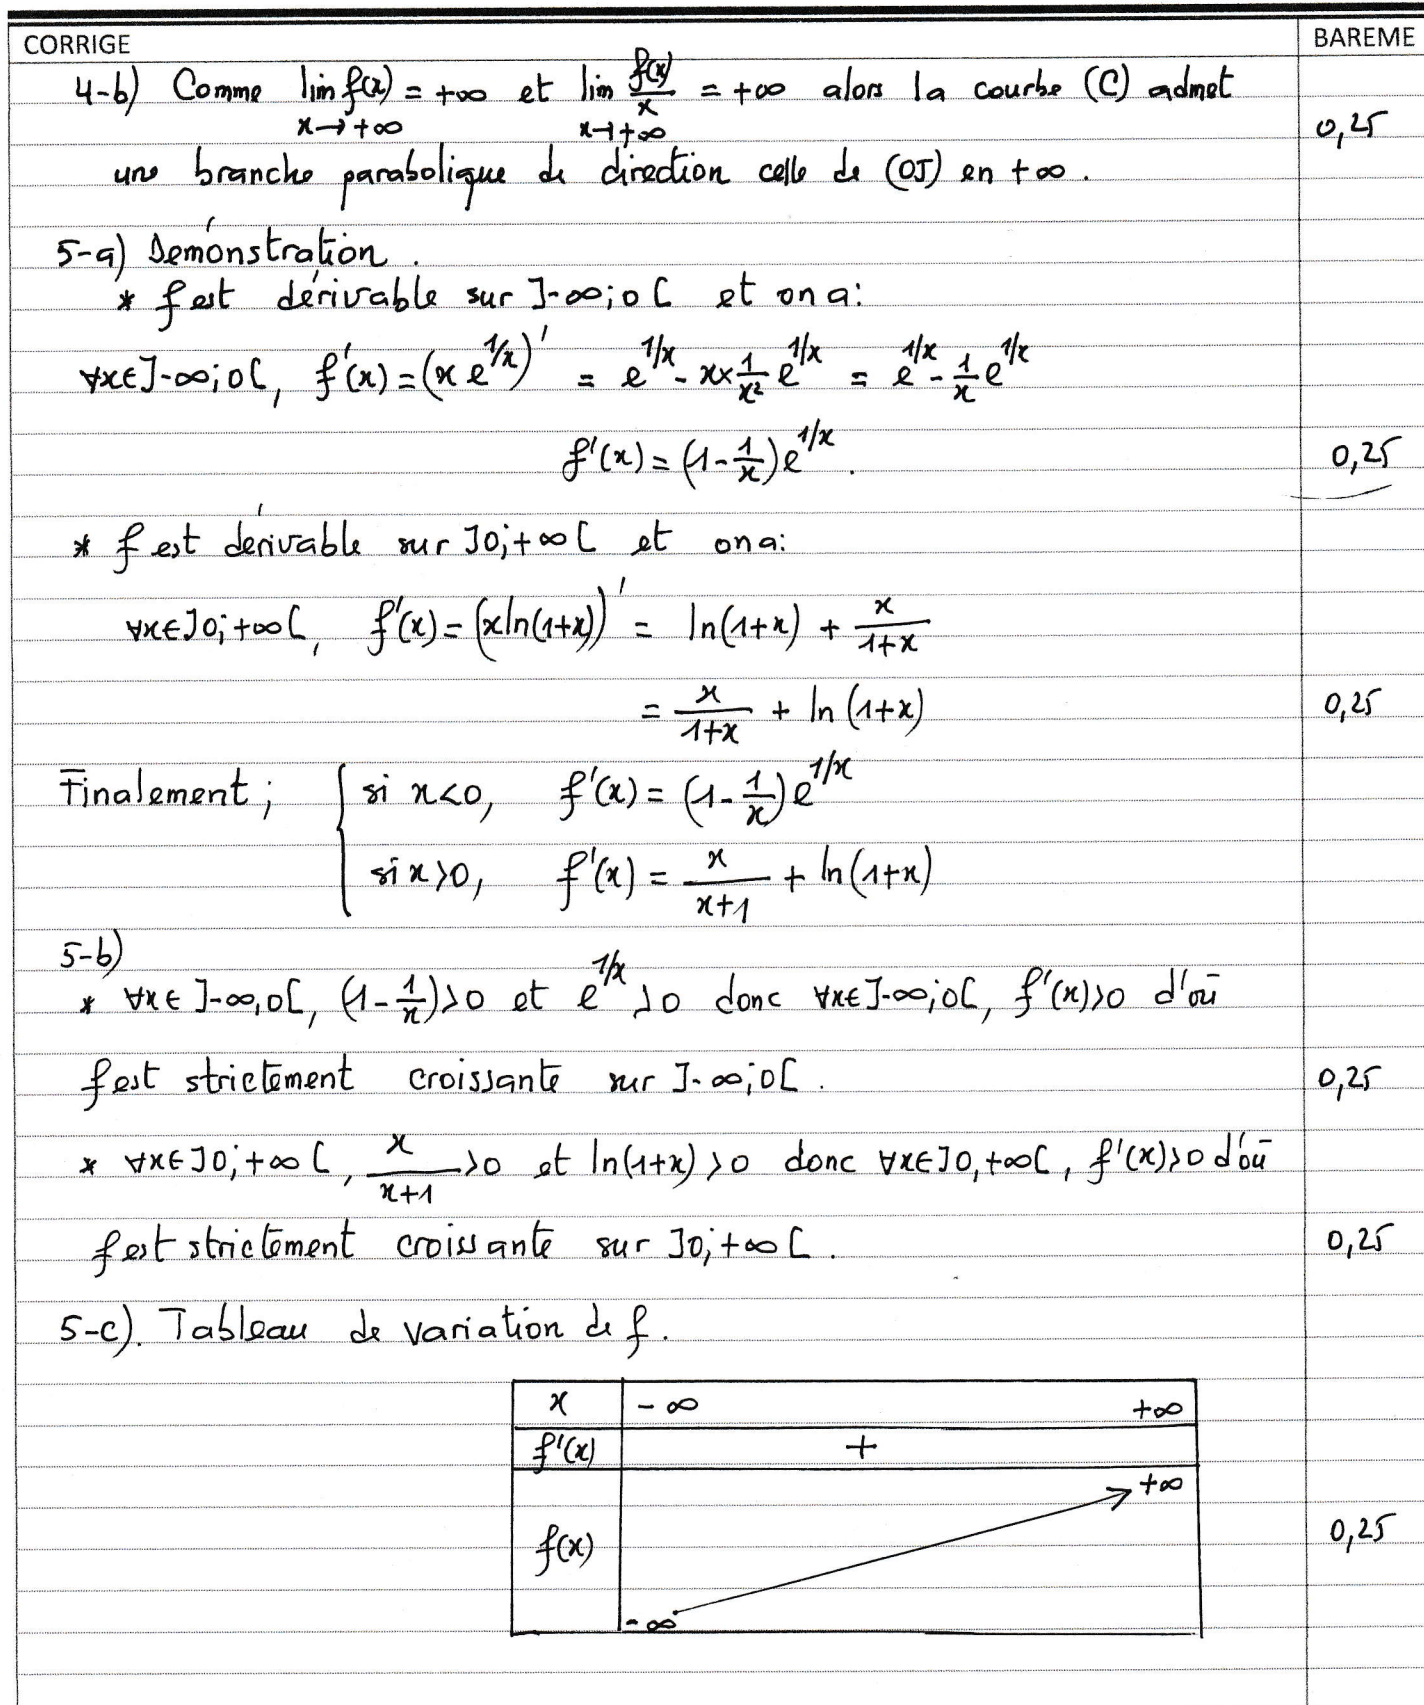 CORRIGE BAREME
4-b) Comme lim f(x) = +∞ et lim f(x)/x = +∞ alors la courbe (C) admet
x→+∞ x→+∞ 0,25
une branche parabolique de direction celle de (OJ) en +∞.
5-a) Démonstration.
* f est dérivable sur ]-∞;0[ et on a:
∀x∈]-∞;0[, f'(x) = (x e^{1/x})' = e^{1/x} - x×1/x² e^{1/x} = e^{1/x} - 1/x e^{1/x}
f'(x) = (1-1/x)e^{1/x}. 0,25
* f est dérivable sur ]0;+∞[ et on a:
∀x∈]0;+∞[, f'(x) = (xln(1+x))' = ln(1+x) + x/(1+x)
= x/(1+x) + ln(1+x) 0,25
Finalement; { si x<0, f'(x) = (1-1/x)e^{1/x}
si x>0, f'(x) = x/(x+1) + ln(1+x)
5-b)
* ∀x∈]-∞,0[, (1-1/x)>0 et e^{1/x}>0 donc ∀x∈]-∞;0[, f'(x)>0 d'où
f est strictement croissante sur ]-∞;0[. 0,25
* ∀x∈]0;+∞[, x/(x+1)>0 et ln(1+x)>0 donc ∀x∈]0,+∞[, f'(x)>0 d'où
f est strictement croissante sur ]0;+∞[. 0,25
5-c). Tableau de variation de f.
x -∞ +∞
f'(x) +
+∞
f(x) 0,25
-∞